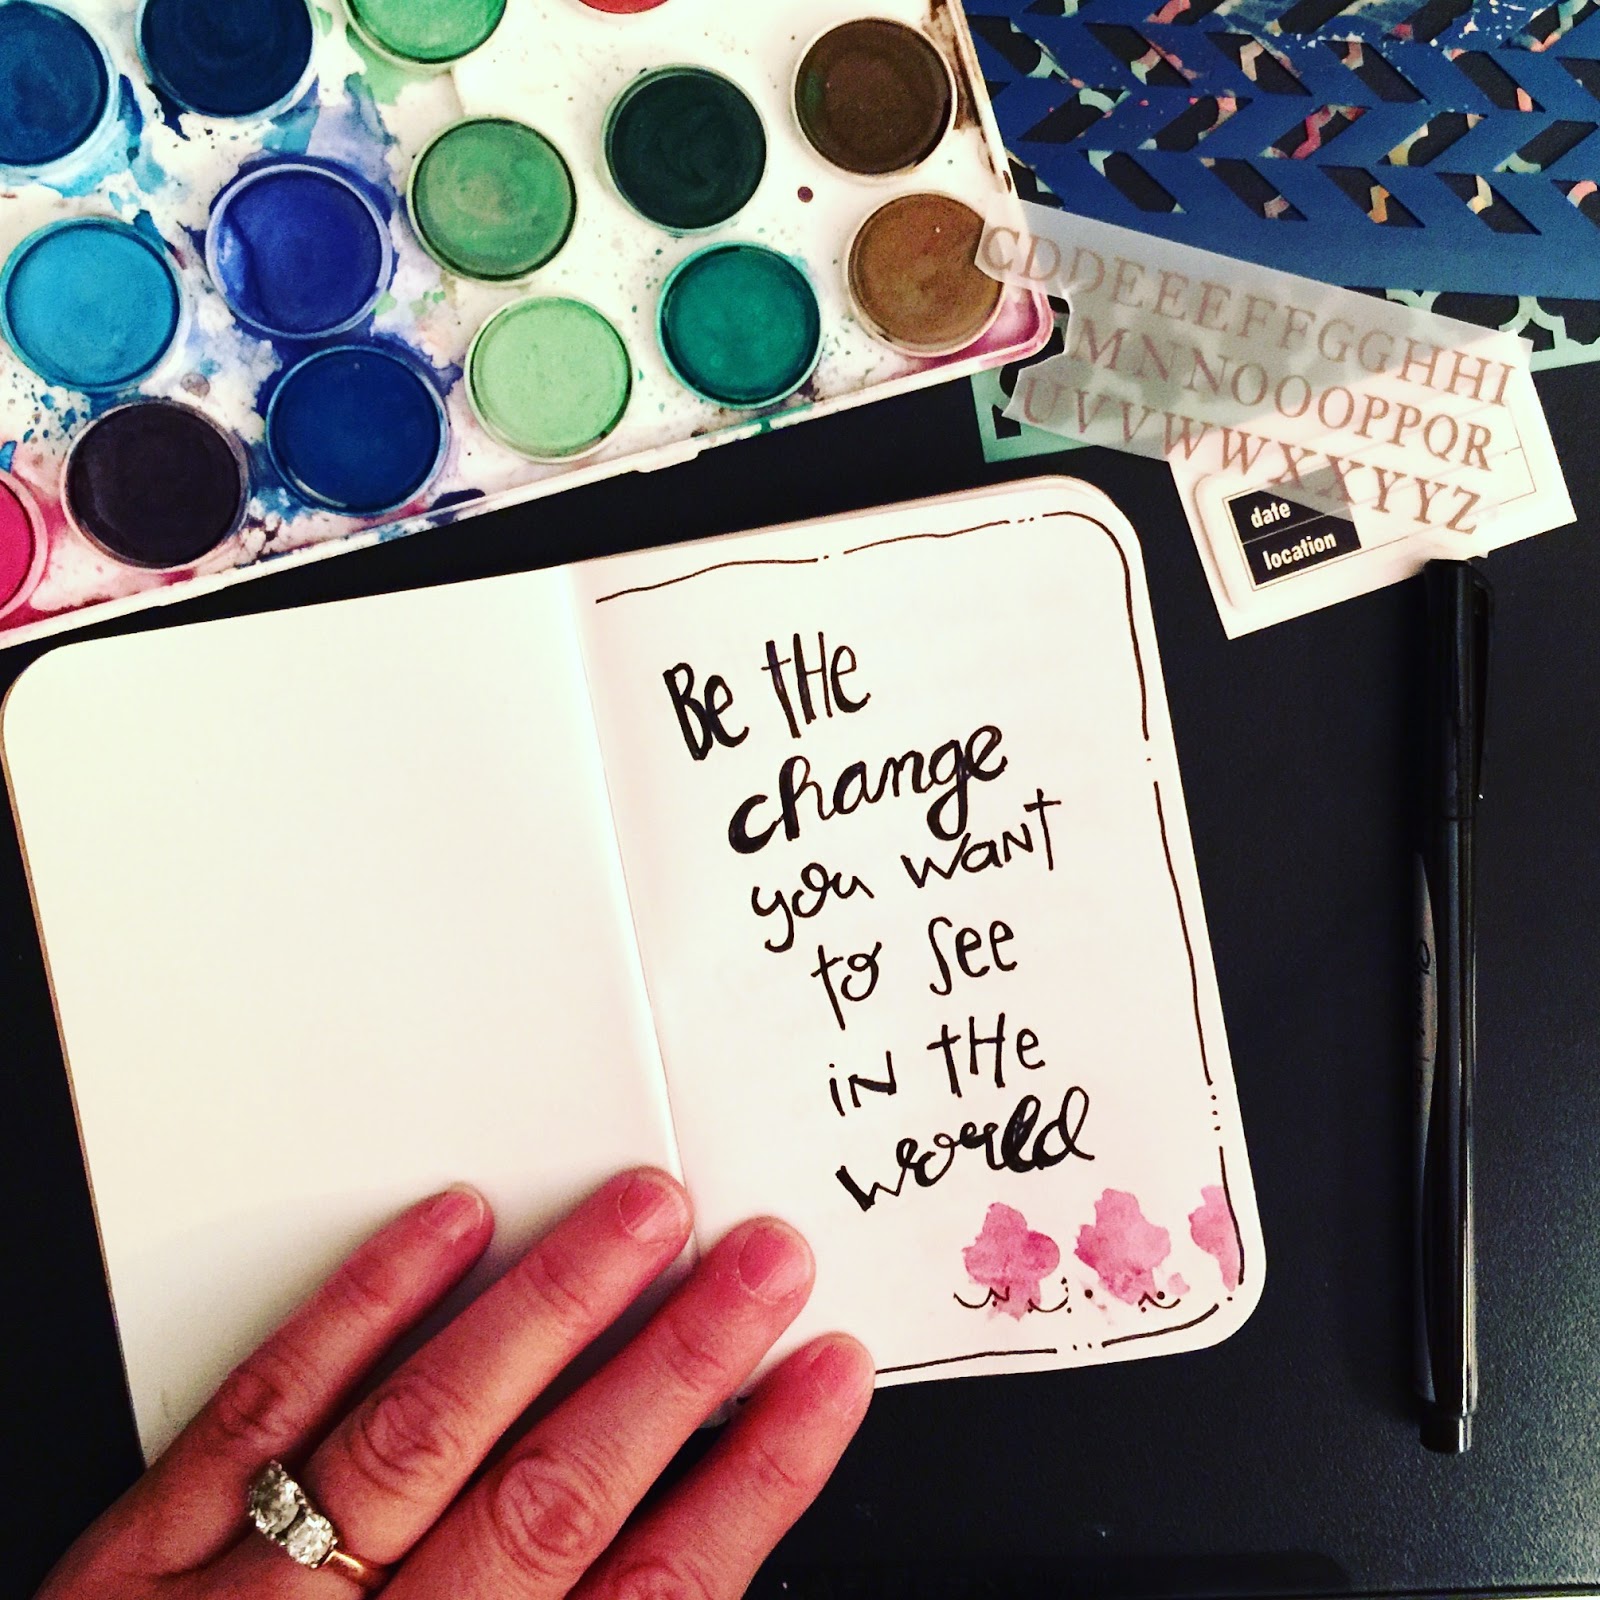 CDDEEEFFGGHHI
MNNOOOPPQR
UVVWWXXYYZ
date
location
Be the
change
you want
to see
in the
world